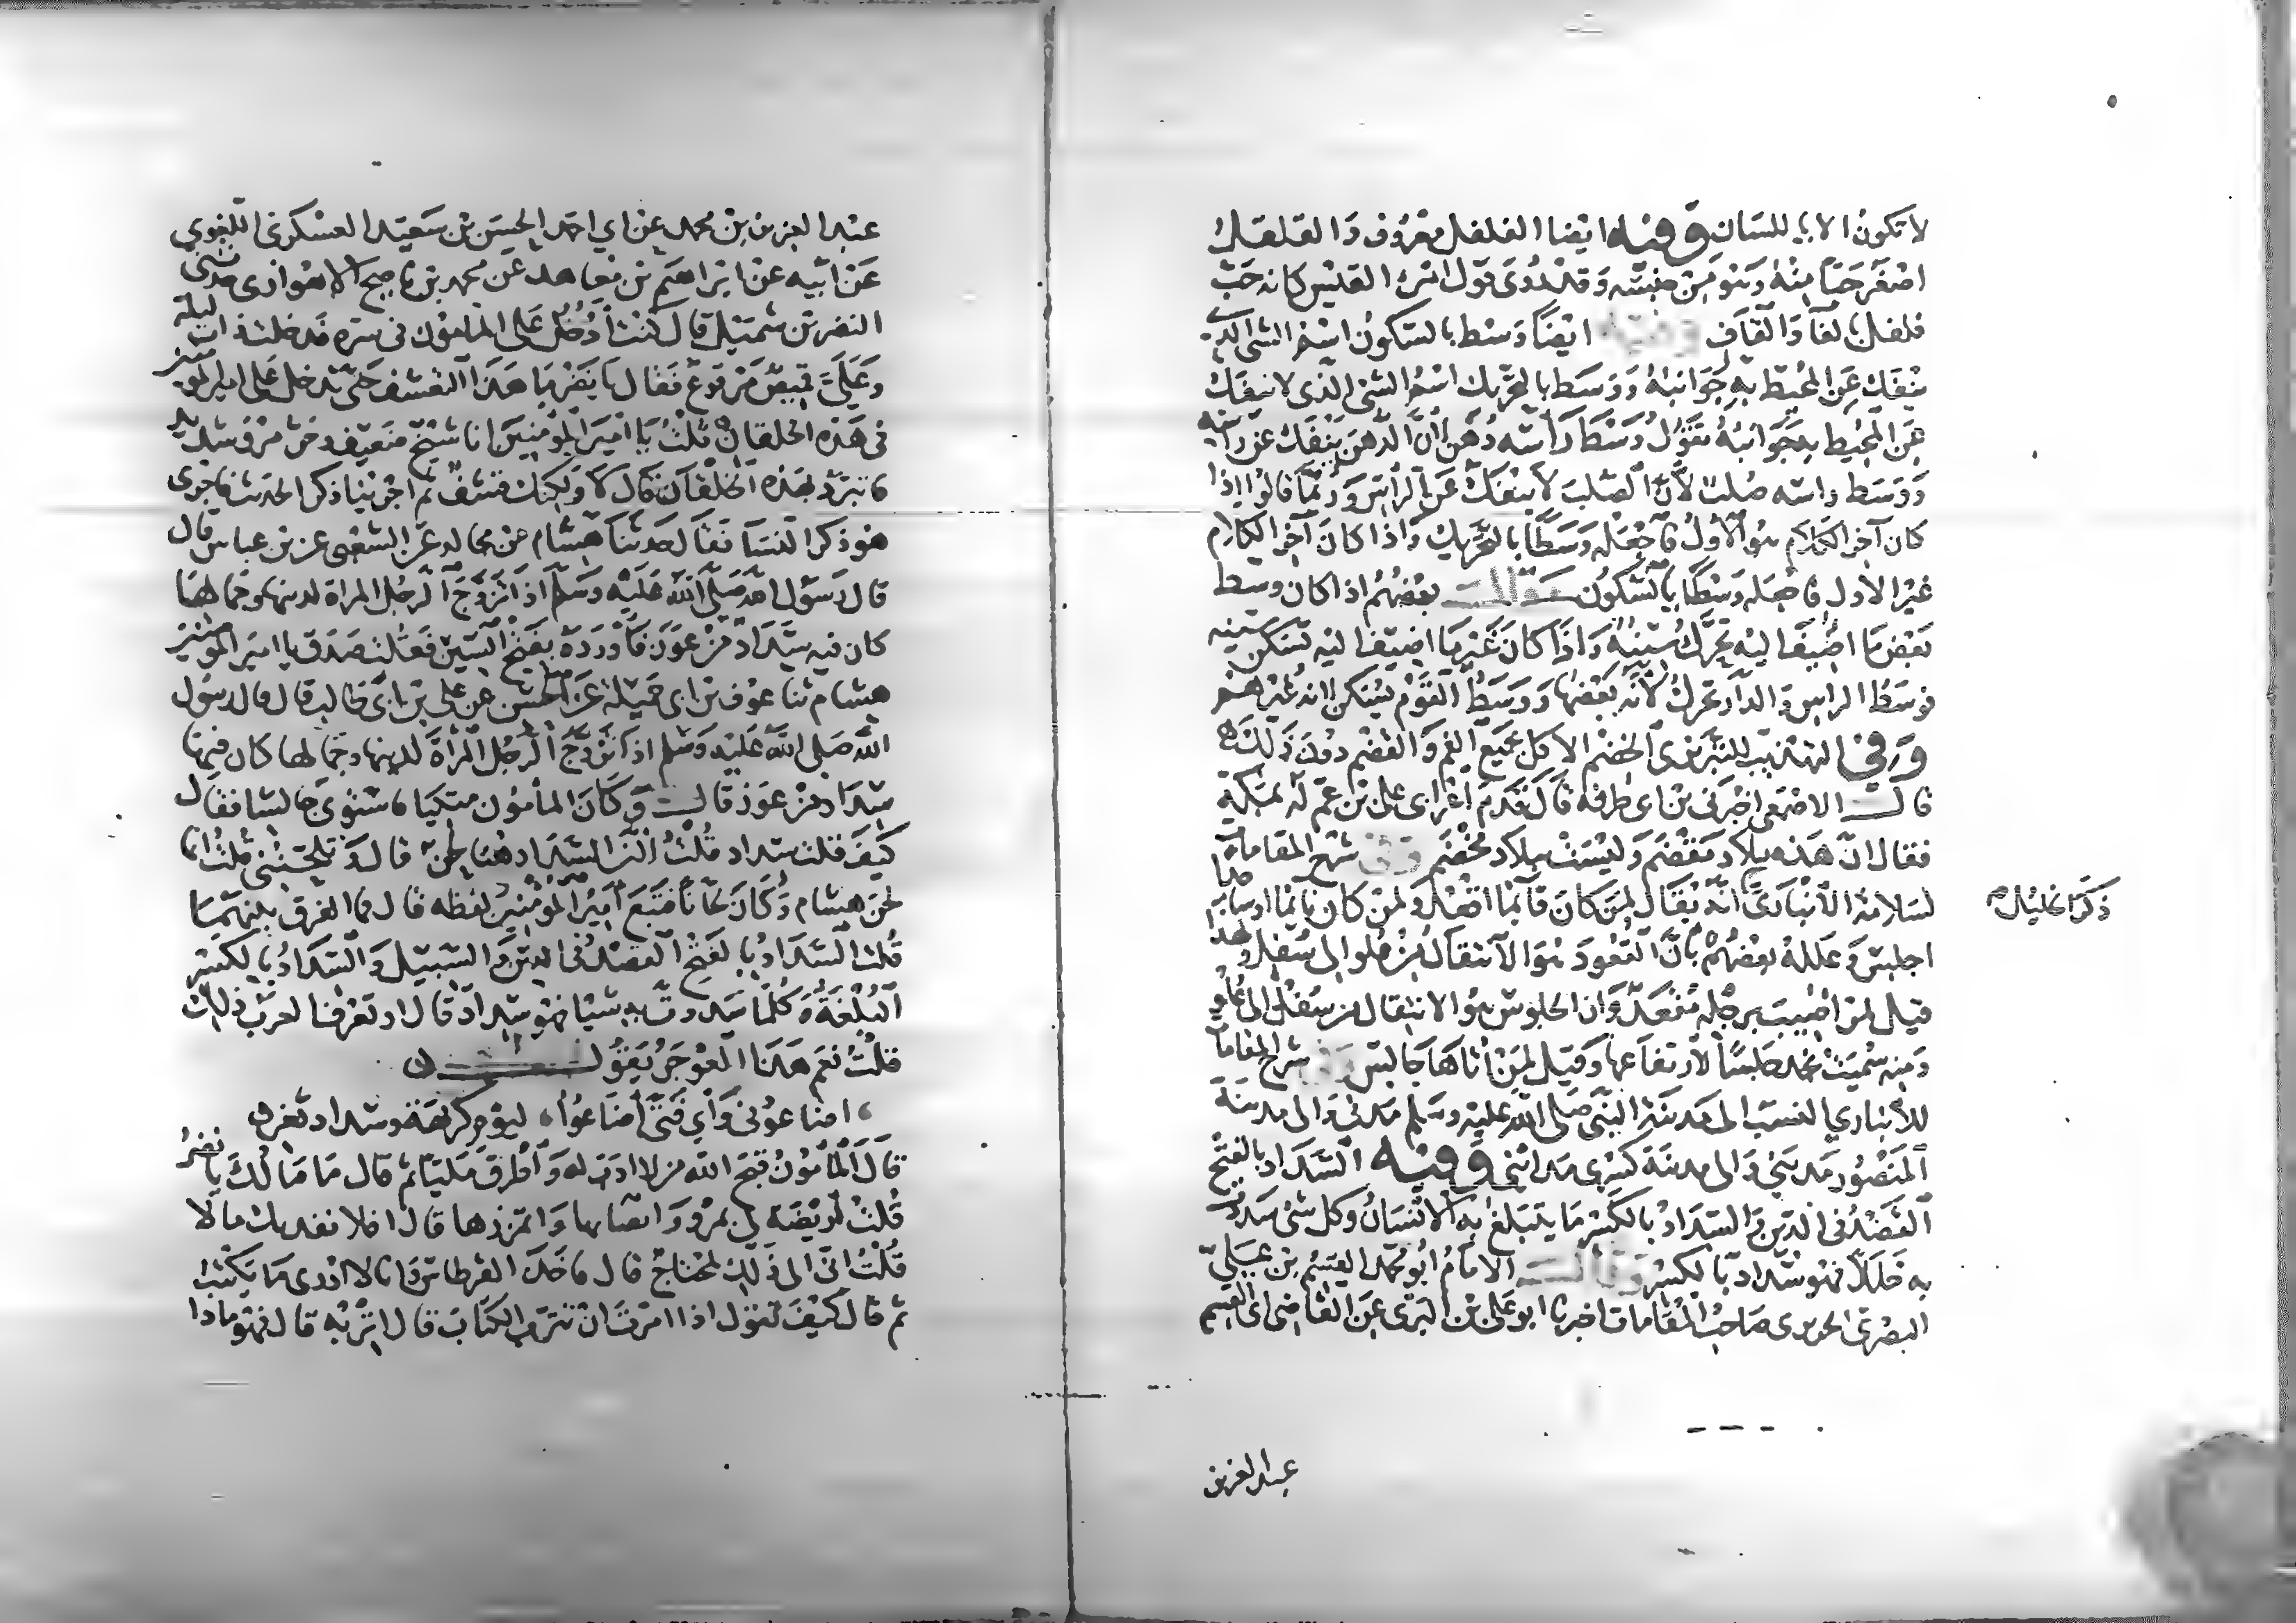 لا تكون الا باللسان وفيه ايضا الفلفل معروف والقلقل
اصغر حبا منه وهو من جنسه وقد روى قول امرئ القيس كانه حب
فلفل بالفا والقاف وفيه ايضا وسط بالسكون اسم الشئ الذي
ينفك عن المحيط به جوانبه ووسط بالتحريك اسم الشئ الذي لا ينفك
عن المحيط به جوانبه تقول وسط راسه دهن لان الدهن ينفك عن راسه
ووسط راسه صلب لان الصلب لا ينفك عن الراس وربما قالوا اذا
كان آخر الكلام هو الاول فاجعله وسطا بالتحريك واذا كان آخر الكلام
غير الاول فاجعله وسطا بالسكون وقال بعضهم اذا كان وسط
بعض ما اضيف اليه تحرك سينه واذا كان غير ما اضيف اليه تسكن سينه
فوسط الراس والدار تحرك لانه بعضها ووسط القوم يسكن لانه غيرهم
وفي التهذيب للتبريزي الخضم الاكل بجميع الفم والقضم دون ذلك
قال الاصمعي اخبرني بن ابي طرفه قال قدم اعرابي على بن عم له بمكة
فقال ان هذه بلاد مقضم وليست ببلاد مخضم وفي شرح المقامات
لسلامة الانباري انه يقال لمن كان قائما اقعد ولمن كان نائما او ساجدا
اجلس وعلله بعضهم بان القعود هو الانتقال من علو الى سفل ولهذا
قيل لمن اصيب برجله مقعد وان الجلوس هو الانتقال من سفل الى علو
ومنه سميت نجد جلسا لارتفاعها وقيل لمن اتاها جالس وفي شرح المقامات
للانباري النسب الى مدينة النبي صلى الله عليه وسلم مدني والى مدينة
المنصور مديني والى مدينة كسرى مدائني وفيه السداد بالفتح
القصد في الدين والسداد بالكسر ما يتبلغ به الانسان وكل شئ سددت
به خللا فهو سداد بالكسر وقال الامام ابو محمد القسم بن علي
البصري الحريري صاحب المقامات اخبرنا ابو علي بن التستري عن القاضي ابي القسم
ذكر الخليل
عبد العزيز
عبد العزيز بن محمد عن ابي احمد الحسن بن سعيد العسكري اللغوي
عن ابيه عن ابراهيم بن حامد عن محمد بن ناصح الاهوازي حدثني
النضر بن شميل قال كنت ادخل على المامون في سمره فدخلت ذات ليلة
وعلي قميص مرقوع فقال يا نضر ما هذا التقشف حتى تدخل على امير المؤمنين
في هذه الخلقان قلت يا امير المؤمنين انا شيخ ضعيف وحر مرو شديد
فاتبرد بهذه الخلقان قال لا ولكنك قشف ثم اجرينا ذكر الحديث فاجرى
هو ذكر النسا فقال حدثنا هشام عن مجالد عن الشعبي عن بن عباس قال
قال رسول الله صلى الله عليه وسلم اذا تزوج الرجل المراة لدينها وجمالها
كان فيه سداد من عوز فاورده بفتح السين فقلت صدق يا امير المؤمنين
هشام ثنا عوف بن ابي جميلة عن الحسن عن علي بن ابي طالب قال قال رسول
الله صلى الله عليه وسلم اذا تزوج الرجل المراة لدينها وجمالها كان فيها
سداد من عوز قال وكان المأمون متكيا فاستوى جالسا فقال
كيف قلت سداد قلت لان السداد هنا لحن قال او تلحنني قلت انما
لحن هشام وكان لحانا فتبع امير المؤمنين لفظه قال فما الفرق بينهما
قلت السداد بالفتح القصد في الدين والسبيل والسداد بالكسر
البلغة وكلما سددت به شيئا فهو سداد قال او تعرف العرب ذلك
قلت نعم هذا العرجي يقول
اضاعوني واي فتى اضاعوا ليوم كريهة وسداد ثغر
قال المأمون قبح الله من لا ادب له واطرق مليا ثم قال ما مالك يا نضر
قلت اريضة لي بمرو اتصابها واتمززها قال افلا نفيدك مالا
قلت اني الى ذلك لمحتاج قال فاخذ القرطاس وانا لا ادري ما يكتب
ثم قال كيف تقول اذا امرت ان تترب الكتاب قال اتربه قال فهو ماذا